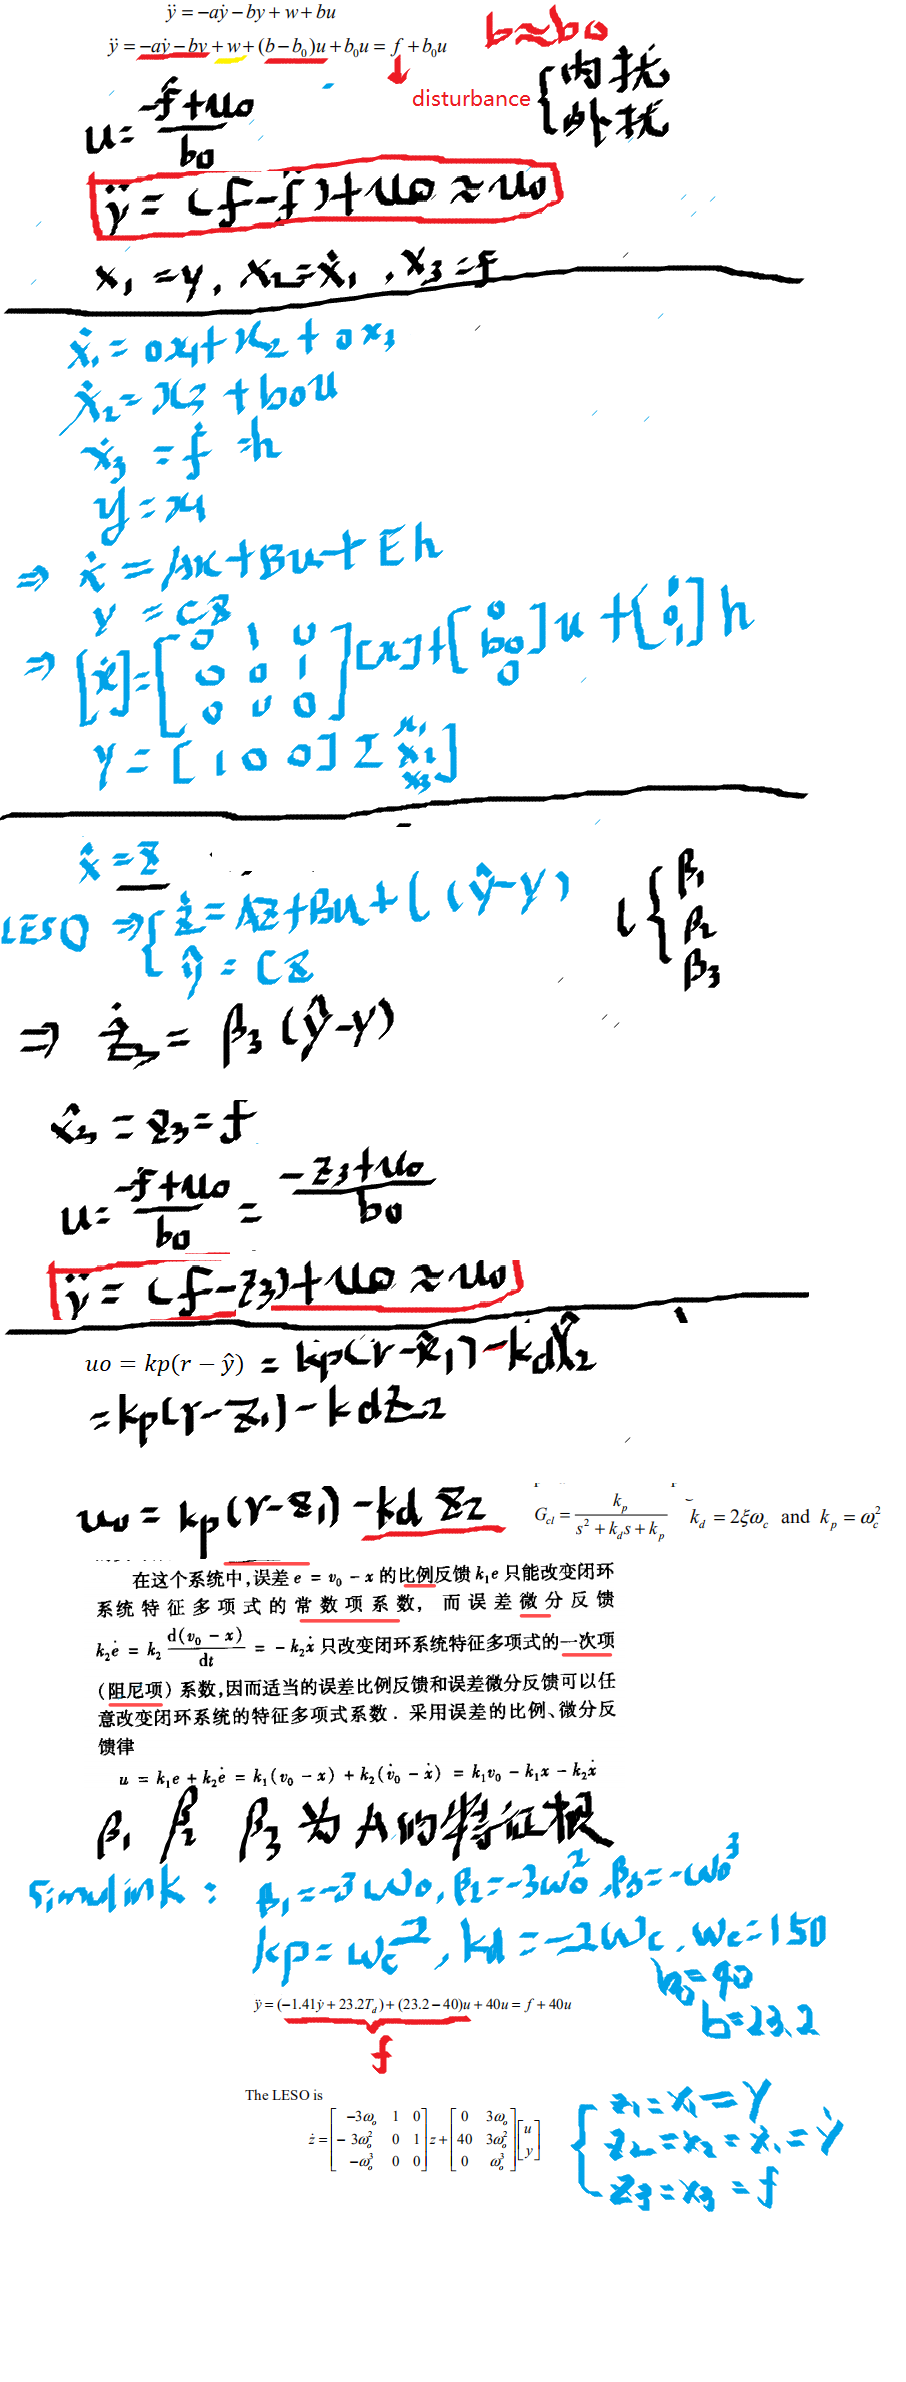 ÿ = −aẏ − by + w + bu
ÿ = −aẏ − by + w + (b − b₀)u + b₀u = f + b₀u
b≈b₀
disturbance { 内扰
外扰
u = (−f̂ + u₀) / b₀
ÿ = (f − f̂) + u₀ ≈ u₀
x₁ = y, x₂ = ẋ₁, x₃ = f
ẋ₁ = 0x₁ + x₂ + 0x₃
ẋ₂ = x₃ + b₀u
ẋ₃ = ḟ = h
y = x₁
⇒ ẋ = Ax + Bu + Eh
y = Cz
⇒ [ẋ] = [0 1 0; 0 0 1; 0 0 0] [x] + [0; b₀; 0] u + [0; 0; 1] h
y = [1 0 0] [x₁; x₂; x₃]
x̂ = z
LESO ⇒ { ż = Az + Bu + L(ŷ − y)
ŷ = Cz
L { β₁
β₂
β₃
⇒ ż₃ = β₃(ŷ − y)
x̂₃ = z₃ = f
u = (−f + u₀) / b₀ = (−z₃ + u₀) / b₀
ÿ = (f − z₃) + u₀ ≈ u₀
uo = kp(r − ŷ) = kp(r − x̂₁) − kd x̂₂
= kp(r − z₁) − kd z₂
u₀ = kp(r − z₁) − kd z₂
G_cl = k_p / (s² + k_d s + k_p) k_d = 2ξω_c and k_p = ω_c²
在这个系统中,误差 e = v₀ − x 的比例反馈 k₁e 只能改变闭环
系统特征多项式的常数项系数, 而误差微分反馈
k₂ė = k₂ d(v₀ − x)/dt = −k₂ẋ 只改变闭环系统特征多项式的一次项
(阻尼项) 系数,因而适当的误差比例反馈和误差微分反馈可以任
意改变闭环系统的特征多项式系数. 采用误差的比例、微分反
馈律
u = k₁e + k₂ė = k₁(v₀ − x) + k₂(v̇₀ − ẋ) = k₁v₀ − k₁x − k₂ẋ
β₁ β₂ β₃ 为A的特征根
simulink: β₁ = −3ω₀, β₂ = −3ω₀², β₃ = −ω₀³
kp = ω_c², kd = −2ω_c, ω_c = 150
b₀ = 40
b = 23.2
ÿ = (−1.41ẏ + 23.2T_d) + (23.2 − 40)u + 40u = f + 40u
f
The LESO is
ż = [−3ω_o 1 0; −3ω_o² 0 1; −ω_o³ 0 0] z + [0 3ω_o; 40 3ω_o²; 0 ω_o³] [u; y]
{ z₁ = x₁ = y
z₂ = x₂ = ẋ₁ = ẏ
z₃ = x₃ = f